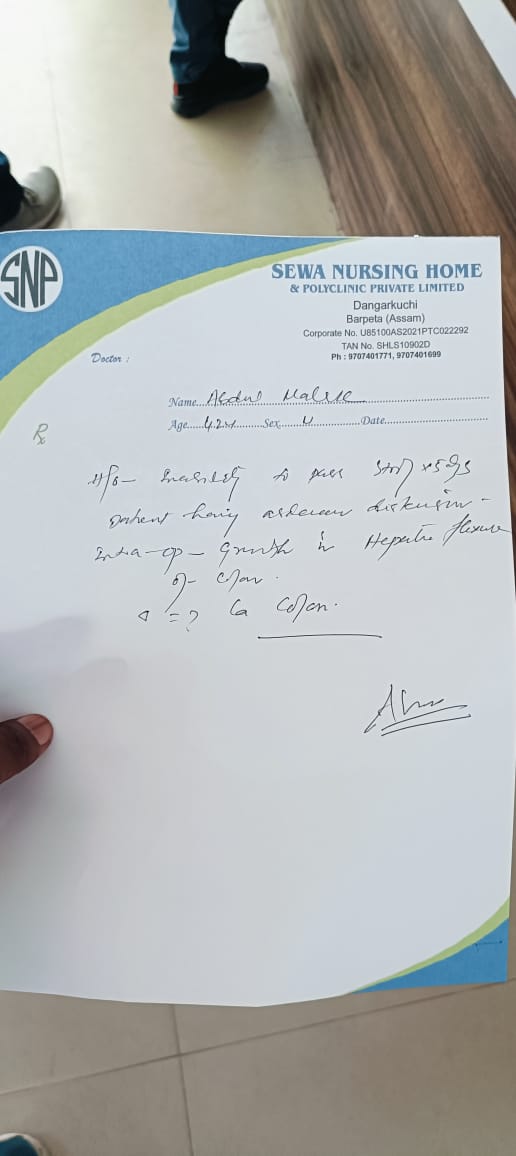 SNP
SEWA NURSING HOME
& POLYCLINIC PRIVATE LIMITED
Dangarkuchi
Barpeta (Assam)
Corporate No. U85100AS2021PTC022292
TAN No. SHLS10902D
Ph : 9707401771, 9707401699
Doctor :
Name... Abdul Malek
Age... 42y Sex... M Date...
Rx
H/o - to pass
patient having
Intra-op - Growth in Hepatic flexure
of colon.
= ? Ca Colon.